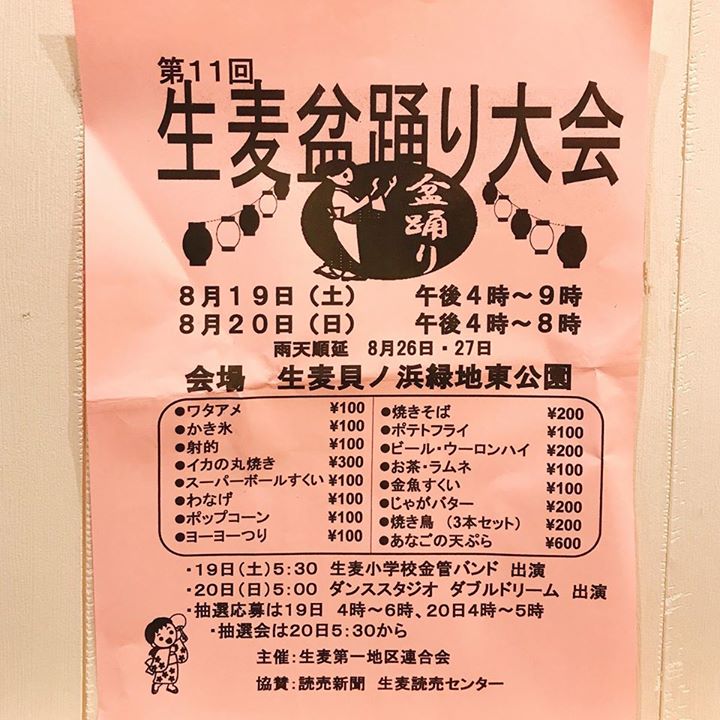 第11回
生麦盆踊り大会
盆踊り
8月19日（土）　午後4時～9時
8月20日（日）　午後4時～8時
雨天順延　8月26日・27日
会場　生麦貝ノ浜緑地東公園
●ワタアメ　¥100
●かき氷　¥100
●射的　¥100
●イカの丸焼き　¥300
●スーパーボールすくい　¥100
●わなげ　¥100
●ポップコーン　¥100
●ヨーヨーつり　¥100
●焼きそば　¥200
●ポテトフライ　¥100
●ビール・ウーロンハイ　¥200
●お茶・ラムネ　¥100
●金魚すくい　¥100
●じゃがバター　¥200
●焼き鳥（3本セット）　¥200
●あなごの天ぷら　¥600
・19日（土）5:30　生麦小学校金管バンド　出演
・20日（日）5:00　ダンススタジオ　ダブルドリーム　出演
・抽選応募は19日　4時～6時、20日4時～5時
・抽選会は20日5:30から
主催：生麦第一地区連合会
協賛：読売新聞　生麦読売センター